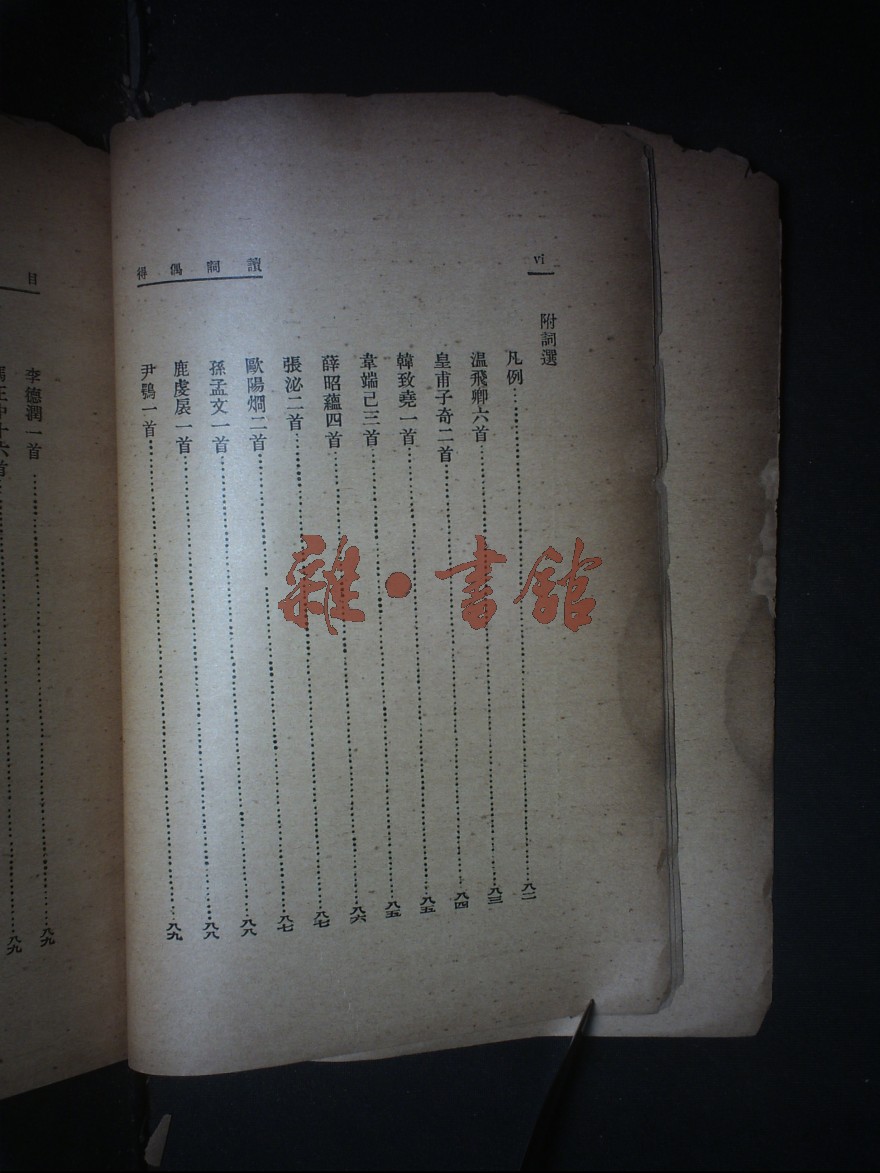 vi
讀詞偶得
附詞選
凡例……八二
溫飛卿六首……八三
皇甫子奇二首……八四
韓致堯一首……八五
韋端己三首……八五
薛昭蘊四首……八六
張泌二首……八七
歐陽烱二首……八七
孫孟文一首……八八
鹿虔扆一首……八八
尹鶚一首……八九
目
李德潤一首……八九
正中十六首……八九
雜·書館